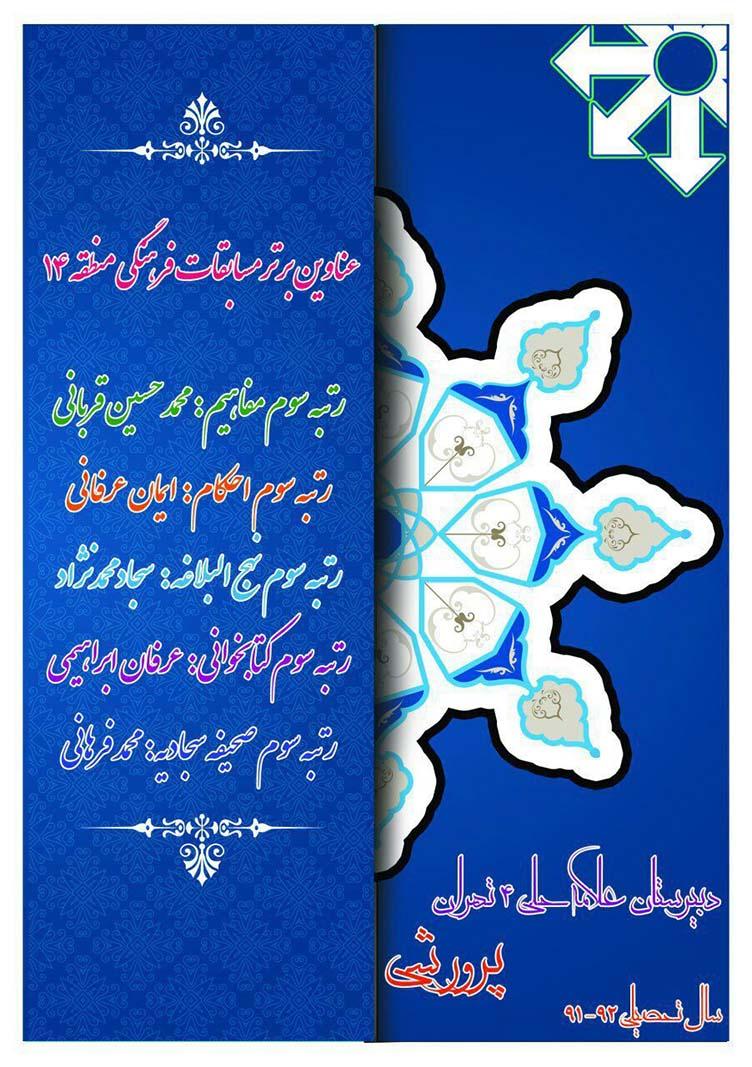 عناوین برتر مسابقات فرهنگی منطقه ۱۴
رتبه سوم مفاهیم: محمد حسین قربانی
رتبه سوم احکام: ایمان عرفانی
رتبه سوم نهج البلاغه: سجاد محمدنژاد
رتبه سوم کتابخوانی: عرفان ابراهیمی
رتبه سوم صحیفه سجادیه: محمد فرهانی
دبیرستان علامه حلی ۴ تهران
پرورشی
سال تحصیلی ۹۲-۹۱